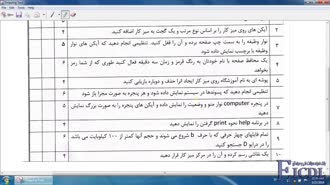 آیکن های روی میز کار را بر اساس نوع مرتب و یک گجت به میز کار اضافه کنید.
نوار وظیفه را به سمت چپ صفحه برده و آن را قفل کنید. تنظیمی انجام دهید که آیکن های نوار وظیفه با برچسب نمایش داده شود
یک محافظ صفحه با نام خودتان به رنگ قرمز و زمان سه دقیقه فعال کنید طوری که از شما رمز بخواهد.
پوشه ای به نام آموزشگاه روی میز کار ایجاد کنید آنرا حذف و دوباره بازیابی کنید
تنظیمی انجام دهید که پسوندها در سیستم نمایش داده شود و هر پنجره به صورت مجزا باز شود
در پنجره computer نوار منو و وضعیت را نمایش داده و آیکن های پنجره به صورت بزرگ نمایش داده شود
در برنامه help نحوه print گرفتن را نمایش دهید
تمام فایلهای چهار حرفی که با حرف b شروع می شوند و حجم آنها کمتر از ۱۰۰ کیلوبایت می باشد را در درایو D جستجو کنید.
یک نقاشی رسم کرده و آن را در مرکز میز کار قرار دهید